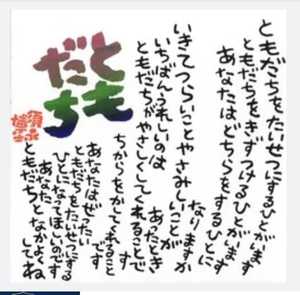 ともだちをたいせつにするひとがいます
ともだちをきずつけるひとがいます
あなたはどちらをするひとに
なりますか
いきてつらいことやさみしいことが
あったとき
いちばんうれしいのは
ともだちがやさしくしてくれることです
ちからをかしてくれること
です
あなたはぜったい
ともだちをたいせつにする
ひとになってほしいのです
あなた
ともだちとなかよくしてね
ともだち
須永博士